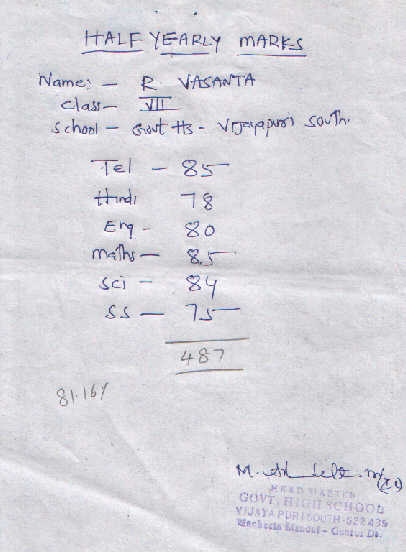 HALF YEARLY MARKS
Name:- R. VASANTA
Class- VII
School - Govt HS - Vijayapuri South.
Tel - 85
Hindi 78
Eng - 80
maths - 85
sci - 84
SS - 75
487
81.16%
HEAD MASTER
GOVT. HIGH SCHOOL
VIJAYAPURI SOUTH-522439
Macherla Mandal - Guntur Dt.